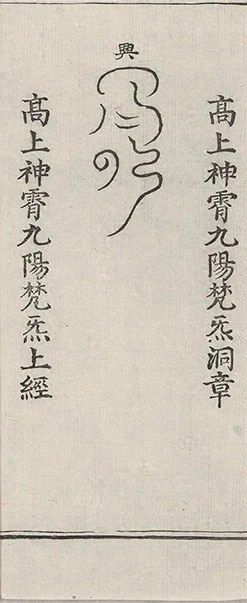 高上神霄九陽梵炁洞章
興
高上神霄九陽梵炁上經